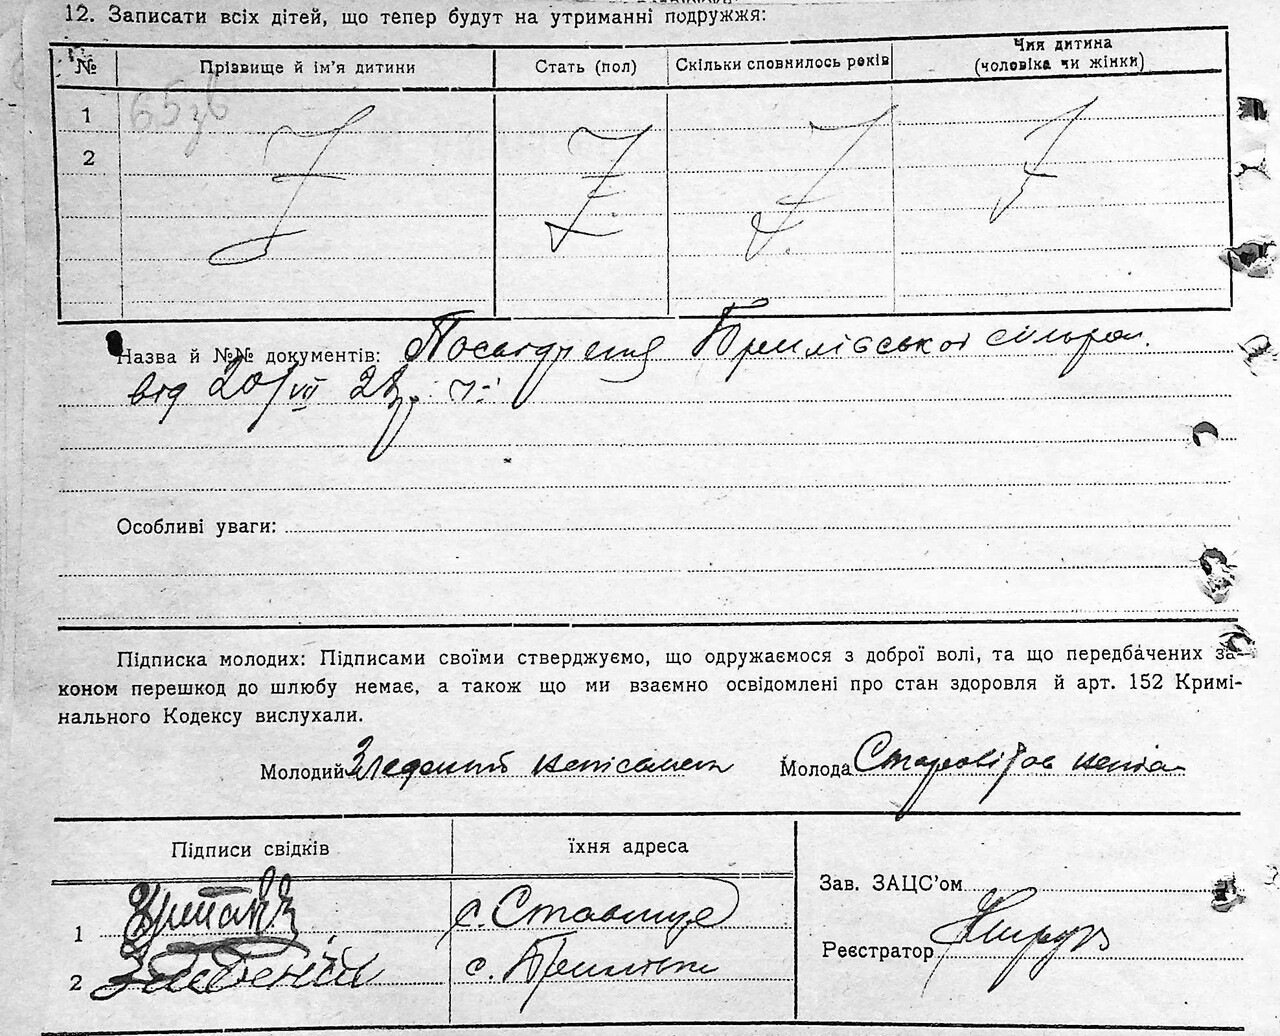 12. Записати всіх дітей, що тепер будут на утриманні подружжя:
№ Прізвище й ім'я дитини Стать (пол) Скільки сповнилось років Чия дитина
(чоловіка чи жінки)
1
2
Назва й №№ документів: Посвідчення сільради
від 20/VII 28 р.
Особливі уваги:
Підписка молодих: Підписами своїми стверджуємо, що одружаємося з доброї волі, та що передбачених за-
коном перешкод до шлюбу немає, а також що ми взаємно освідомлені про стан здоровля й арт. 152 Кримі-
нального Кодексу вислухали.
Молодий Молода
Підписи свідків їхня адреса
Зав. ЗАЦС'ом
1 с. Ставище
Реєстратор
2 с.